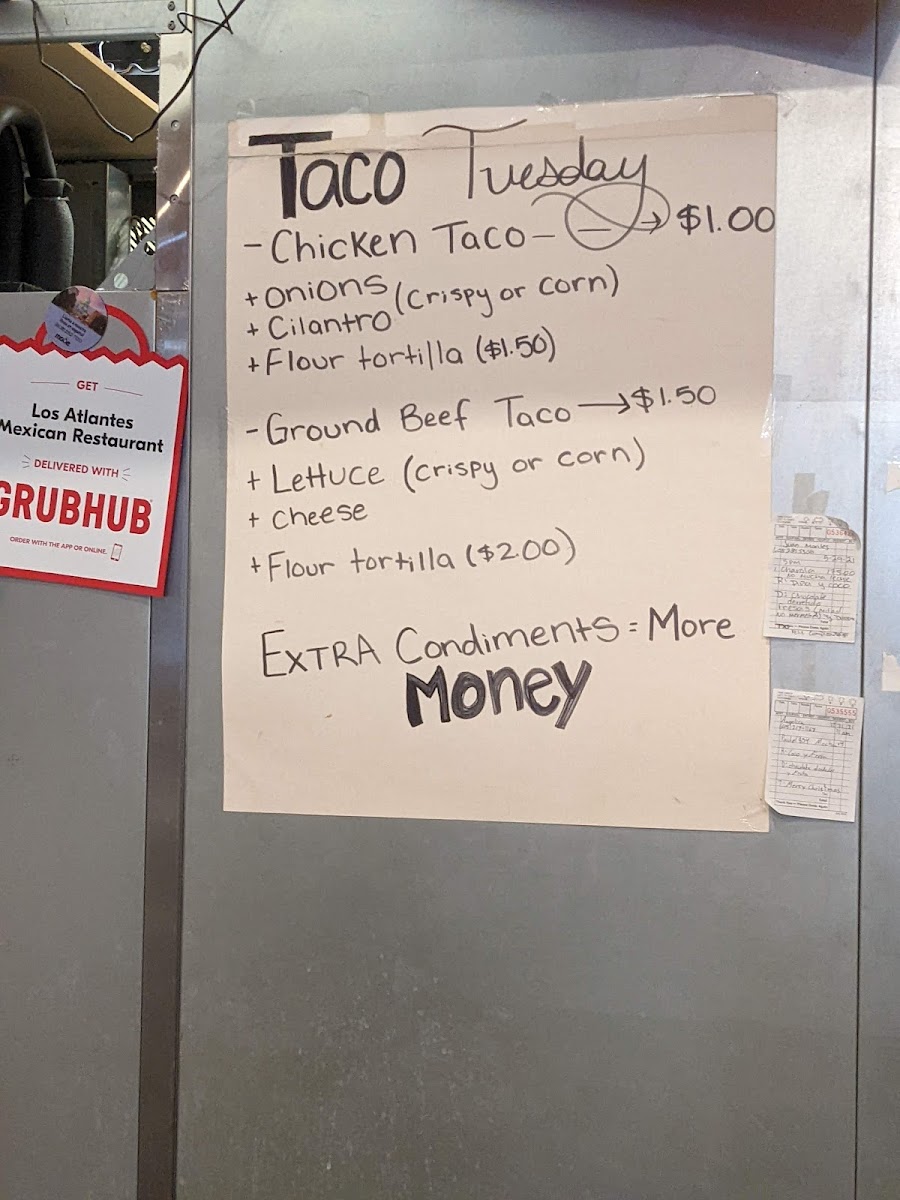 Taco Tuesday
- Chicken Taco - — → $1.00
+ onions (crispy or corn)
+ Cilantro
+ Flour tortilla ($1.50)
- Ground Beef Taco → $1.50
+ Lettuce (crispy or corn)
+ cheese
+ Flour tortilla ($2.00)
EXTRA Condiments = More
Money
GET
Los Atlantes
Mexican Restaurant
DELIVERED WITH
GRUBHUB
ORDER WITH THE APP OR ONLINE.